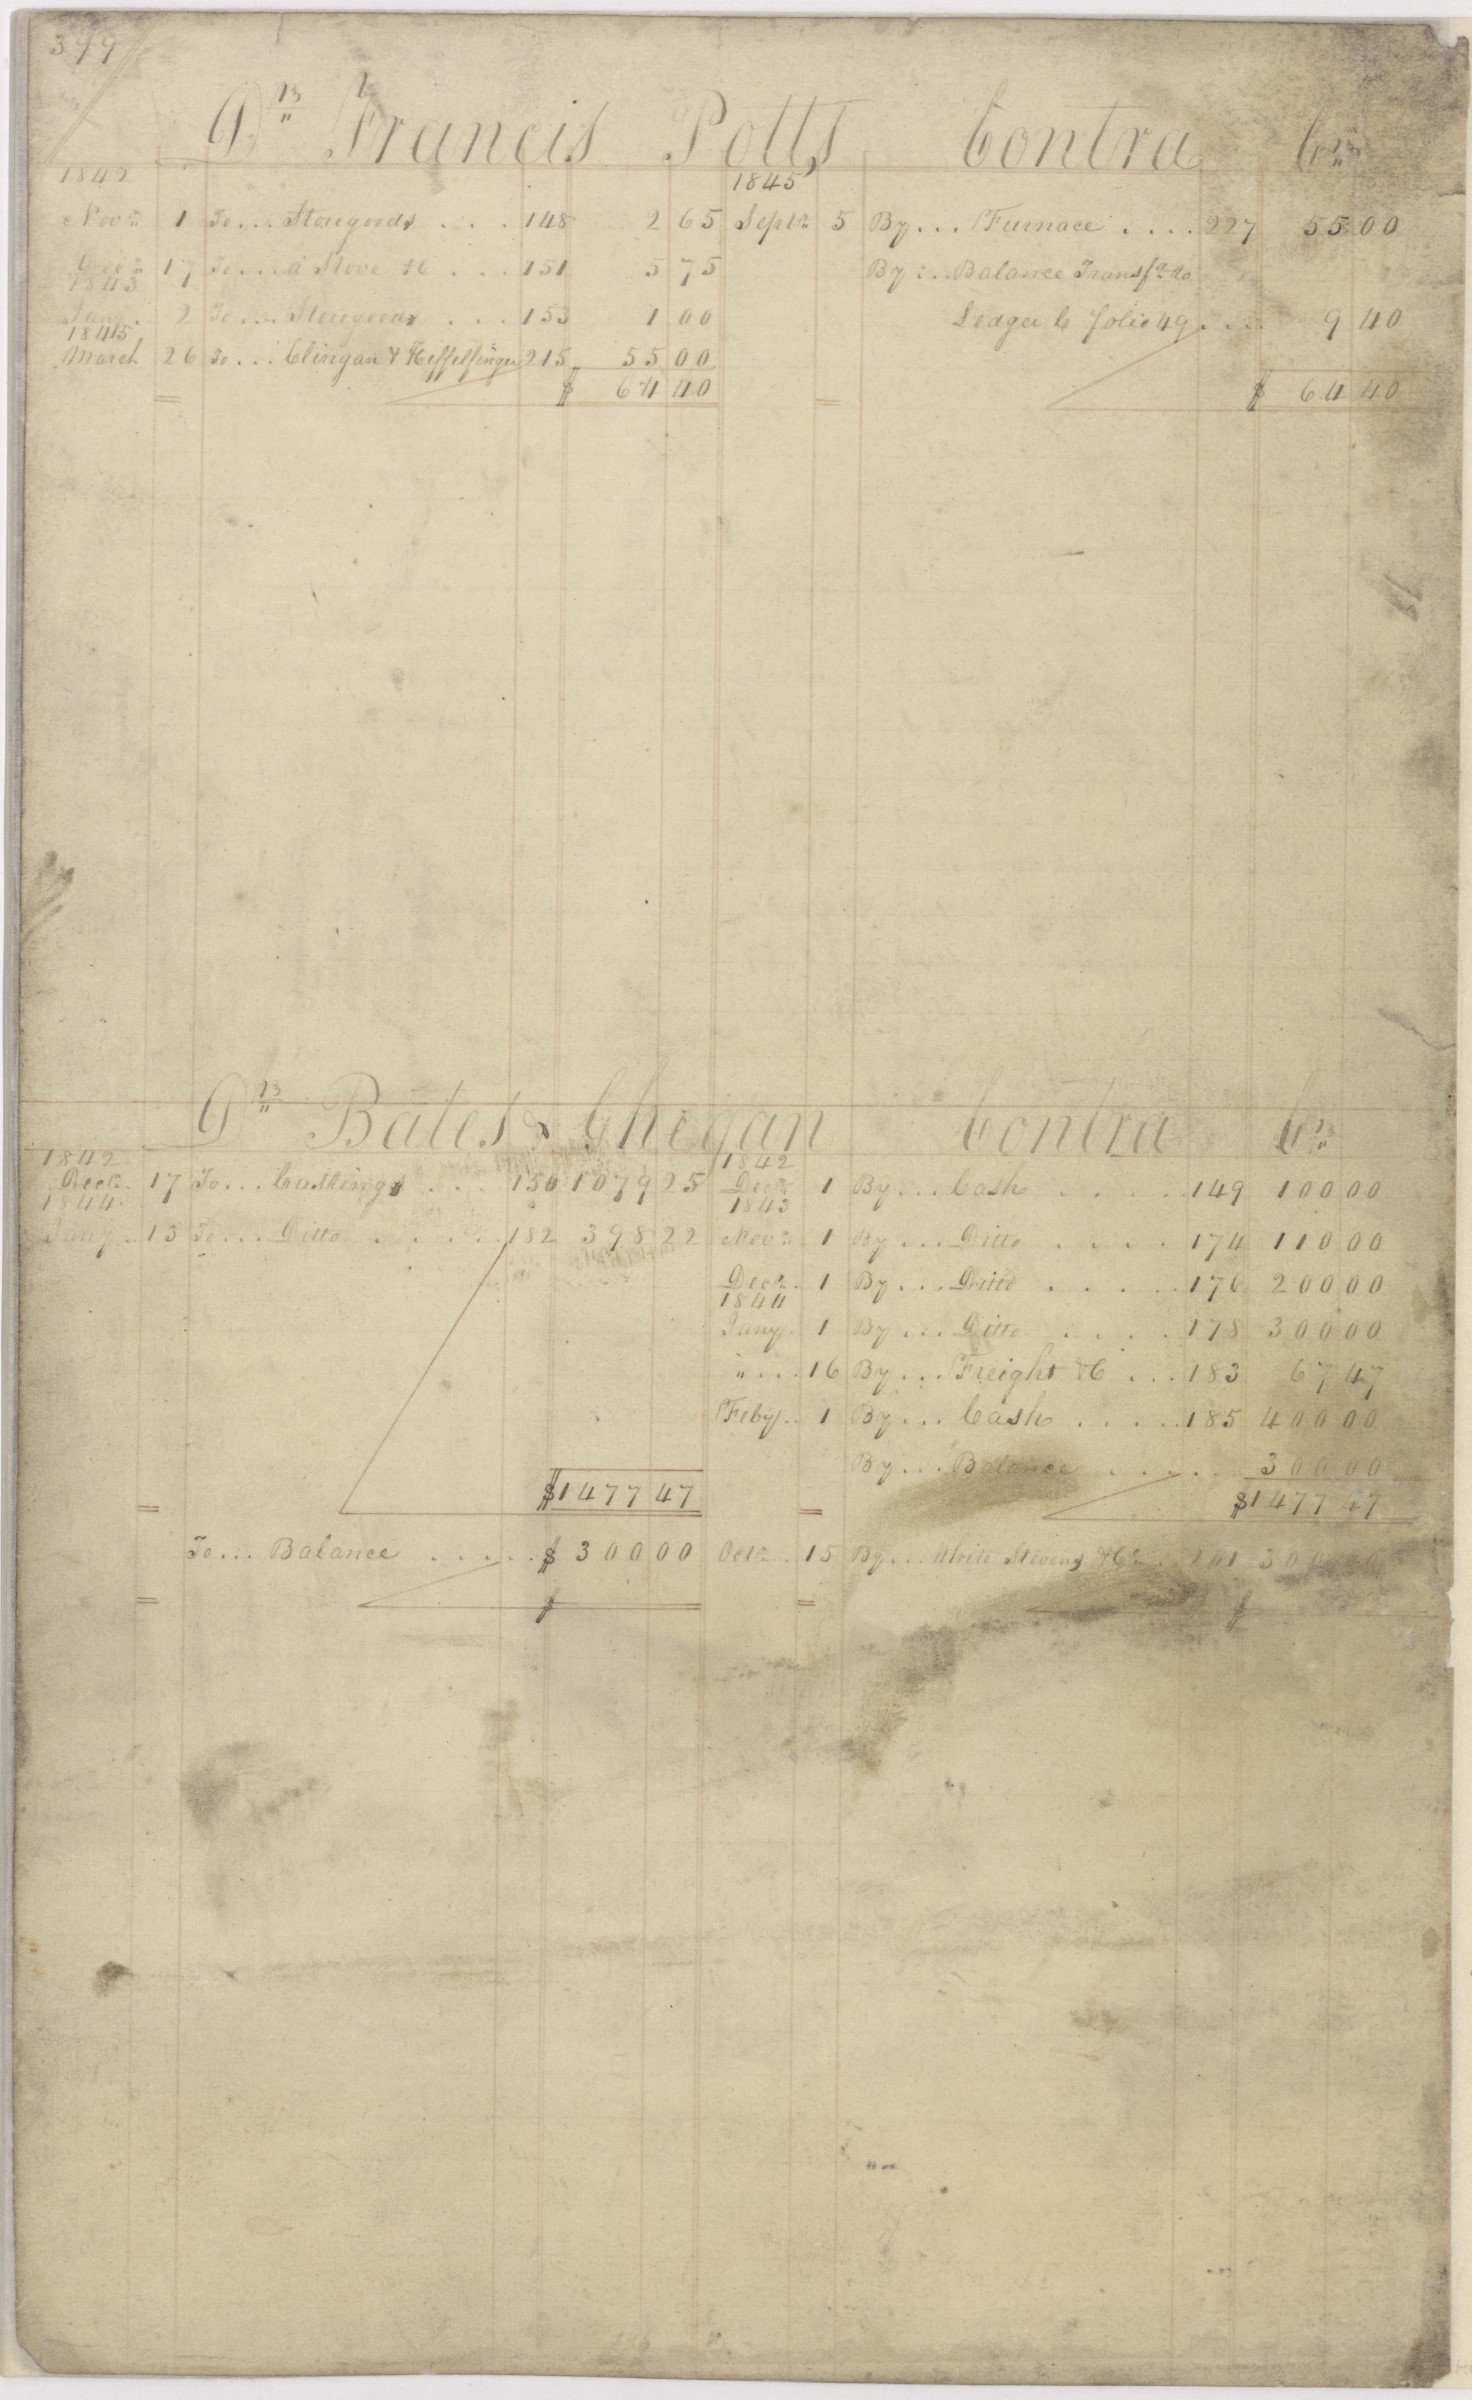 399
Dr. Francis Potts Contra Cr.
1842 1845
Novr. 1 To... Storegoods .... 148 2 65 Septr. 5 By... Furnace .... 227 55 00
Decr. 17 To... a Stove &c ... 151 5 75 By... Balance Transfd. to
1843
Jany. 2 To... Storegoods ... 153 1 00 Ledger C folio 49 ... 9 40
1845
March 26 To... Clingan & Heffelfinger 215 55 00
$ 64 40 $ 64 40
Dr. Bates & Ghegan Contra Cr.
1842 1842
Decr. 17 To... Castings .... 150 1079 25 Decr. 1 By... Cash ..... 149 100 00
1844 1843
Jany. 13 To... Ditto ...... 182 398 22 Novr. 1 By... Ditto .... 174 110 00
Decr. 1 By... Ditto ..... 176 200 00
1844
Jany. 1 By... Ditto .... 178 300 00
" ... 16 By... Freight &C ... 183 67 47
Feby. 1 By... Cash ..... 185 400 00
By... Balance ...... 300 00
$1477 47 $1477 47
To... Balance ..... $ 300 00 Octr. 15 By... Write Stevens & Co. 201 300 00
$ $